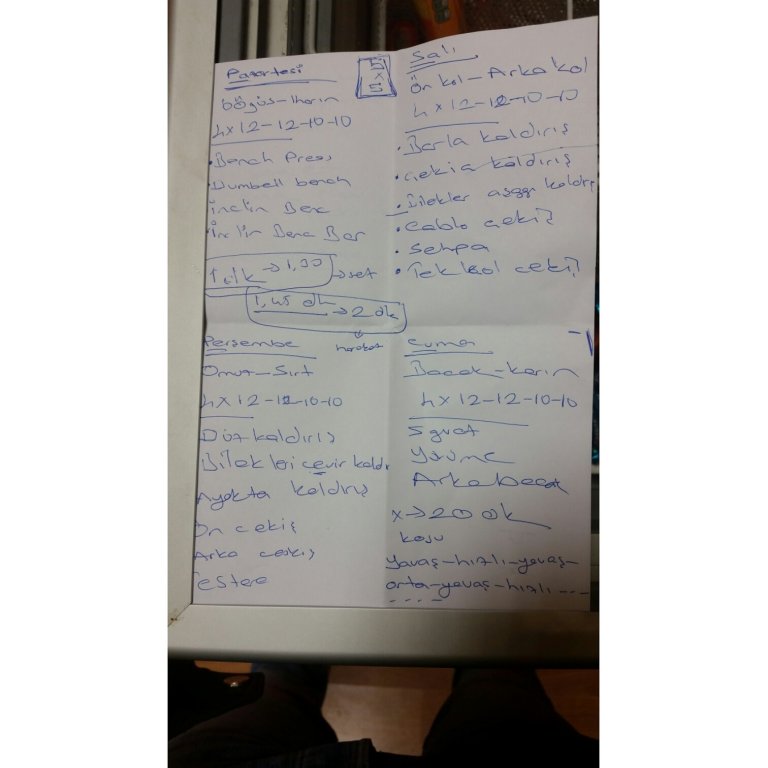 Pazartesi
Göğüs-Karın
4x12-12-10-10
Bench Press
Dumbell bench
İnclin Benc
İnclin Benc Bar
1 dk → 1,30 → set
1,45 dk → 2 dk
hareket
5
x
5
Salı
Ön kol-Arka kol
4x12-12-10-10
Barla kaldırış
Çekiç kaldırış
Bilekler aşağı kaldırış
Cablo çekiş
Sehpa
Tek kol çekiş
Perşembe
Omuz-Sırt
4x12-12-10-10
Düz kaldırış
Bilekleri çevir kaldır
Ayakta kaldırış
Ön çekiş
Arka çekiş
Testere
Cuma
Bacak-Karın
4x12-12-10-10
Sguat
Yürüme
Arka bacak
x→20 dk
koşu
yavaş-hızlı-yavaş-
orta-yavaş-hızlı ---
----